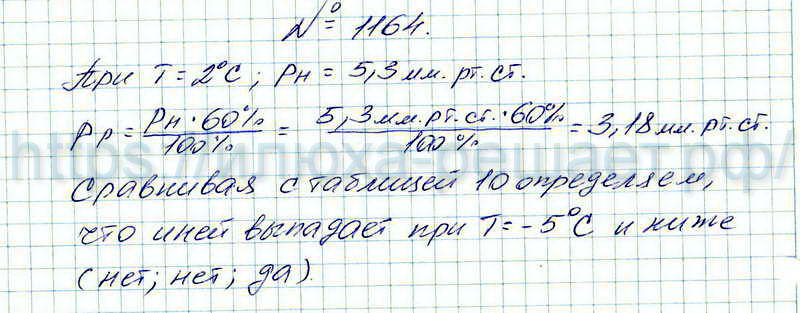 № 1164.
При T = 2°C; Рн = 5,3 мм. рт. ст.
Рр = Рн · 60% / 100% = 5,3 мм. рт. ст. · 60% / 100% = 3,18 мм. рт. ст.
Сравнивая с таблицей 10 определяем,
что иней выпадает при T = -5°C и ниже
(нет; нет; да).